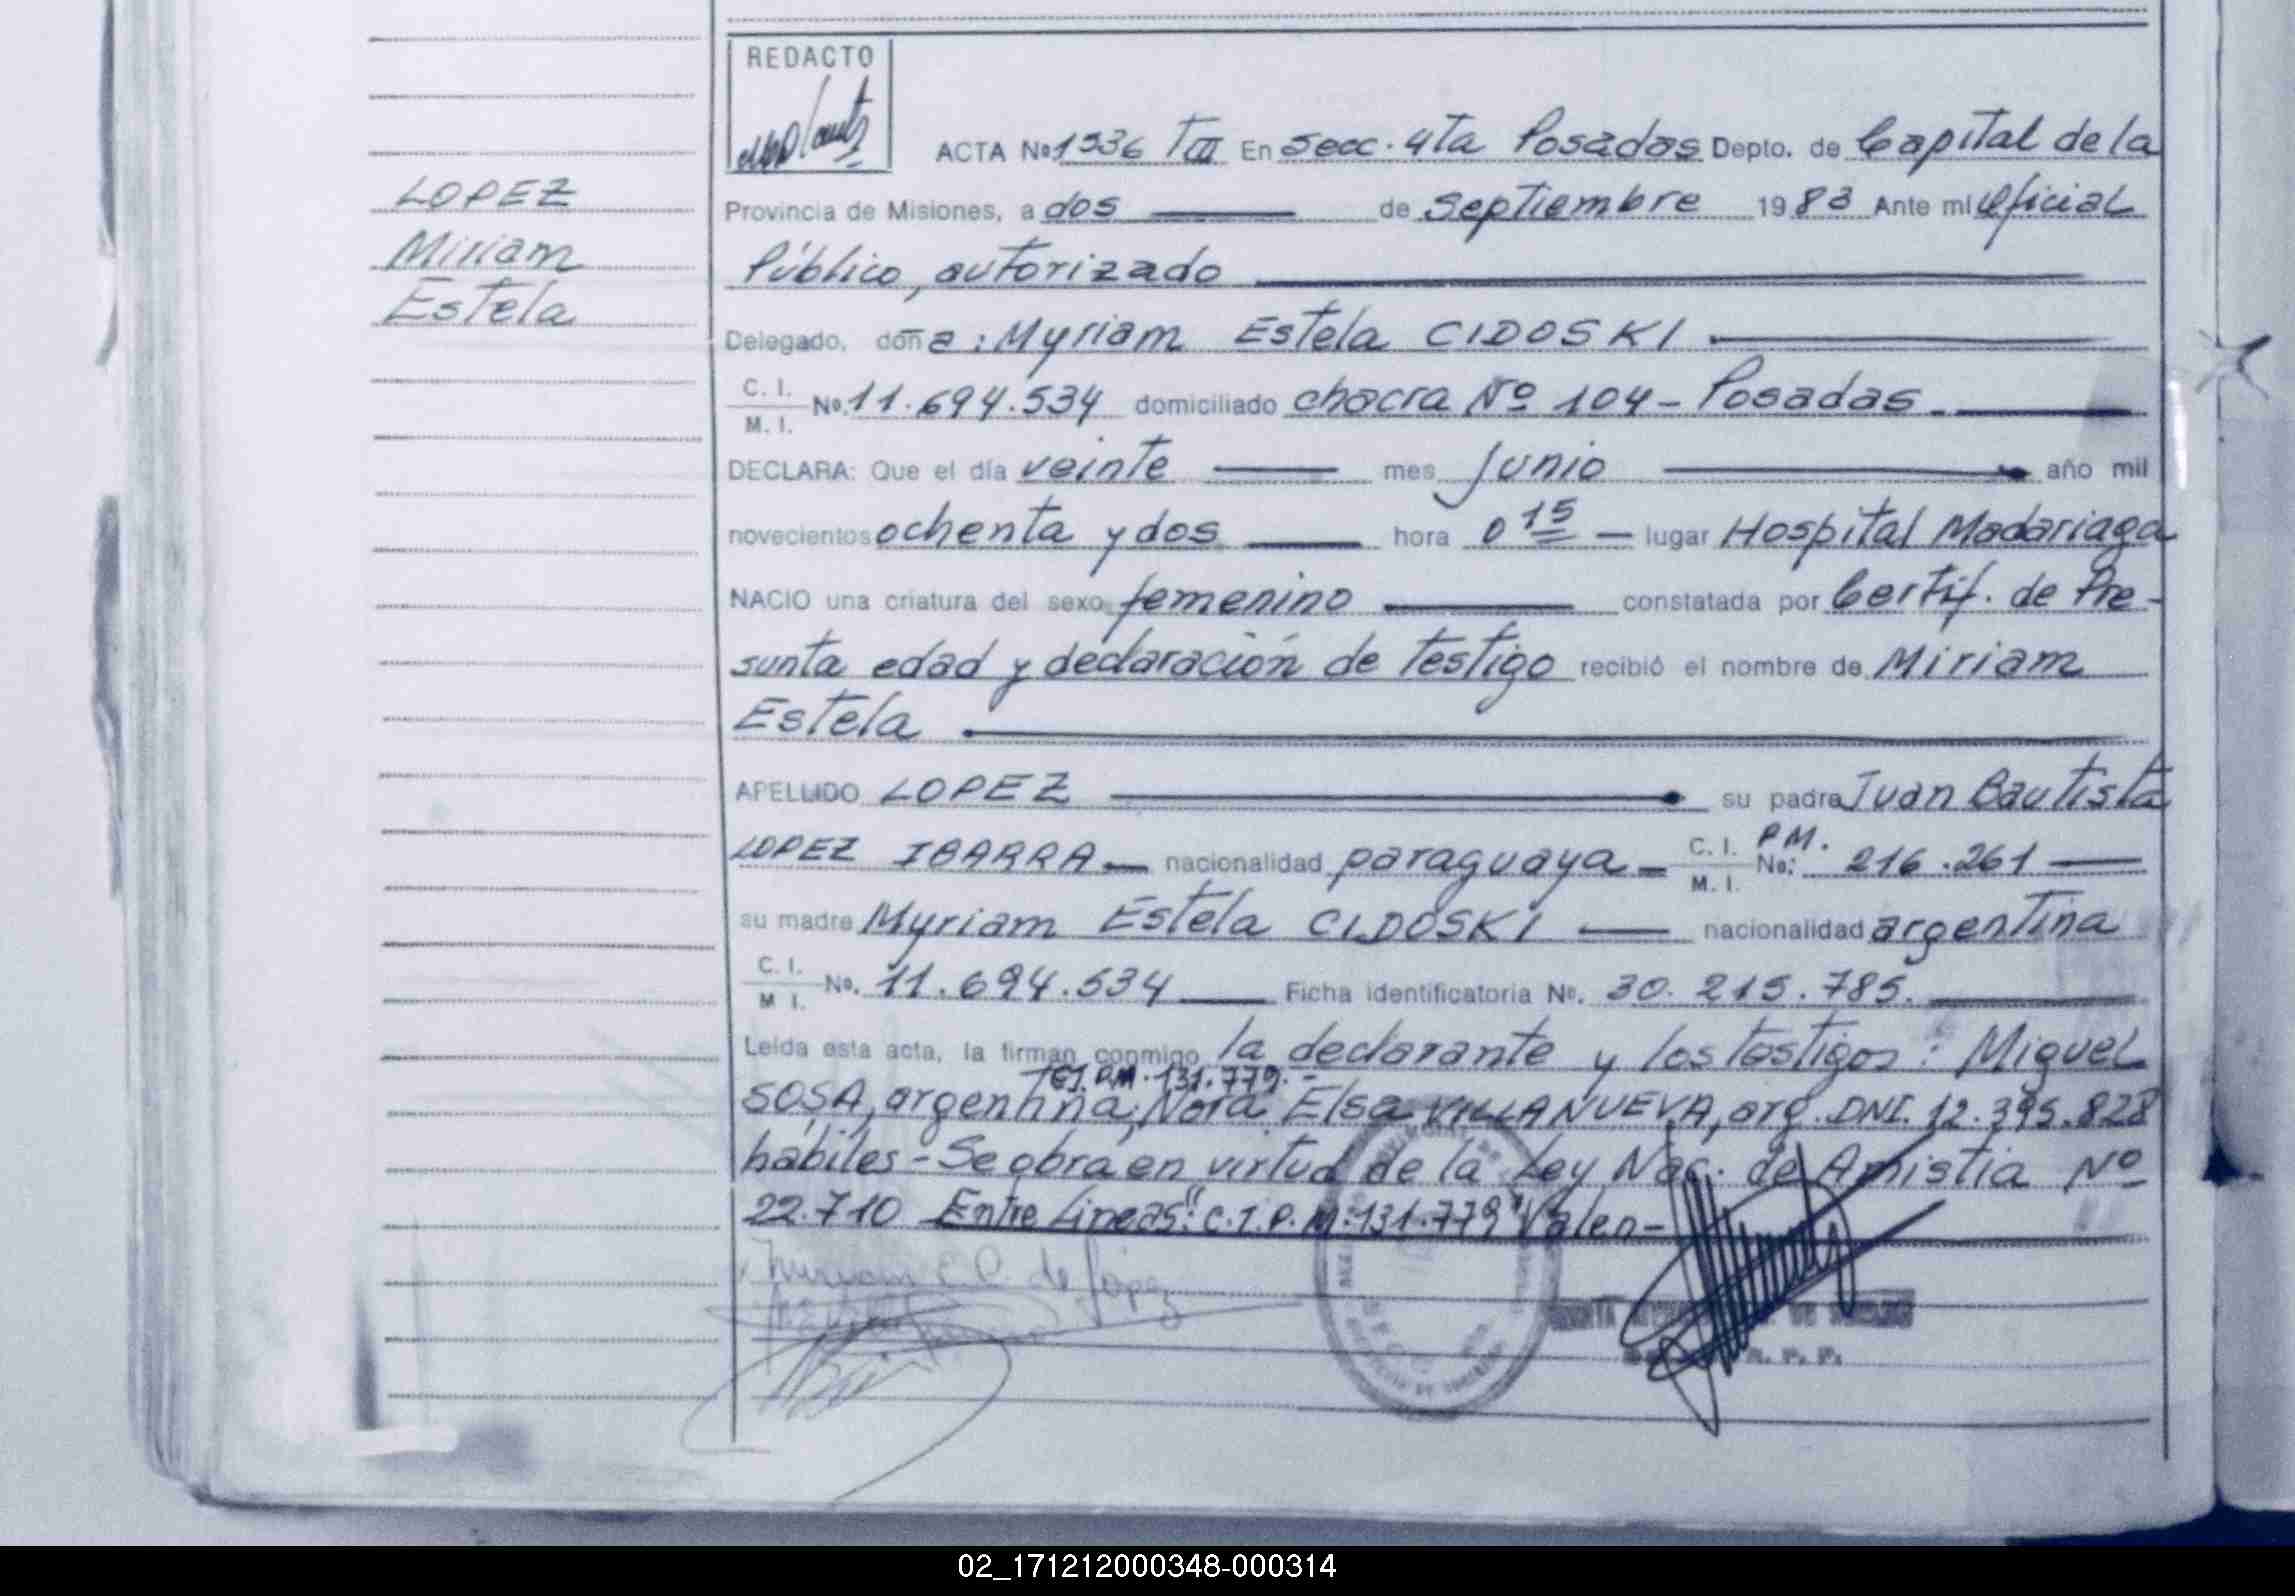 REDACTO
ACTA Nº 1936 TIII En Secc. 4ta Posadas Depto. de Capital de la
LOPEZ
Provincia de Misiones, a dos de septiembre 1983 Ante mi Oficial
Miriam
Público, autorizado
Estela
Delegado, doña: Myriam Estela CIDOSKI
C. I.
M. I.
Nº. 11.694.534 domiciliado chacra Nº 104 - Posadas.
DECLARA: Que el día veinte mes Junio año mil
novecientos ochenta y dos hora 0 15 lugar Hospital Madariaga
NACIO una criatura del sexo femenino constatada por Certif. de Pre-
sunta edad y declaración de testigo recibió el nombre de Miriam
Estela
APELLIDO LOPEZ su padre Juan Bautista
LOPEZ IBARRA nacionalidad paraguaya C. I. P.M.
M. I. Nº: 216.261
su madre Myriam Estela CIDOSKI nacionalidad argentina
C. I.
M I.
Nº. 11.694.534 Ficha identificatoria Nº. 30.215.785.
Leída esta acta, la firman conmigo la declarante y los testigos: Miguel
C.I. P.M. 131.779.-
SOSA, argentina, Nora Elsa VILLANUEVA, arg. DNI. 12.395.828
hábiles - Se obra en virtud de la Ley Nac. de Amistia Nº
22.710 Entre Líneas: "C.I.P.M. 131.779" Valen-
Miriam E. C. de López
02_171212000348-000314